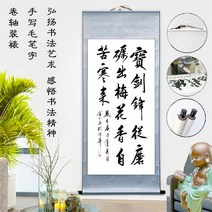 寶劍鋒從磨
礪出梅花香自
苦寒来
弘扬书法艺术 感悟书法精神
手写毛笔字
卷轴装裱